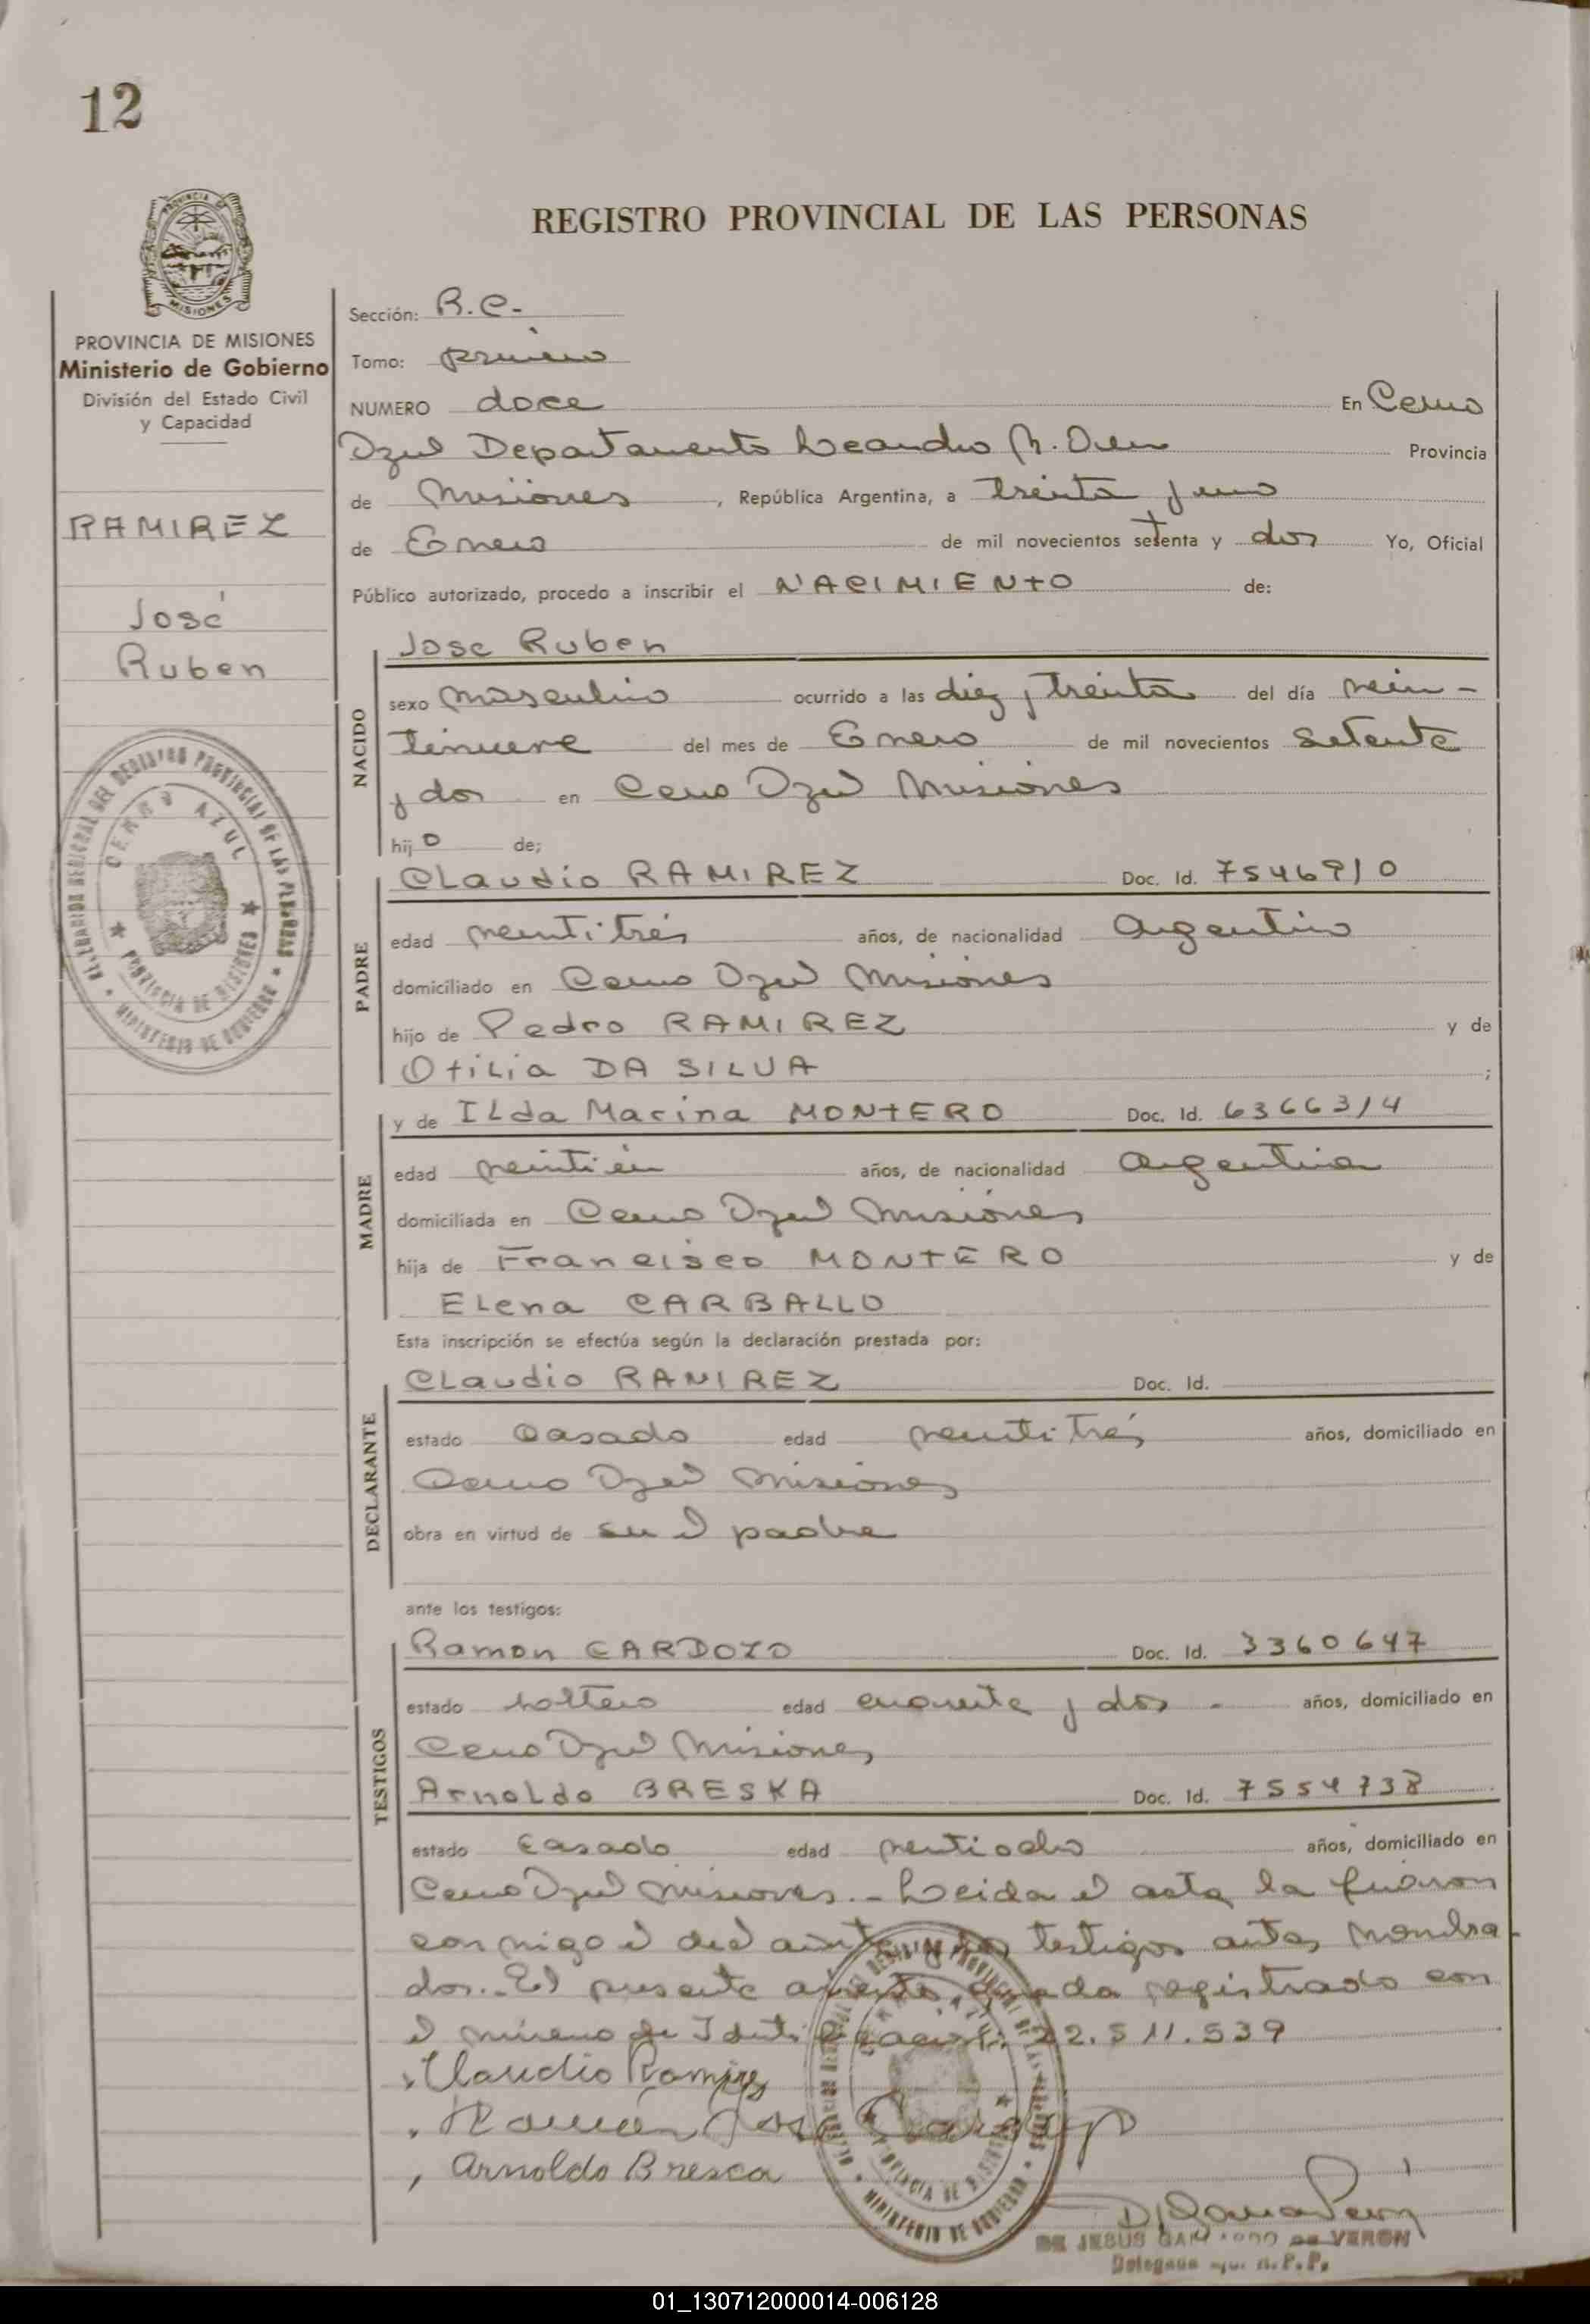 12
REGISTRO PROVINCIAL DE LAS PERSONAS
PROVINCIA DE MISIONES
Ministerio de Gobierno
División del Estado Civil
y Capacidad
RAMIREZ
José
Ruben
Sección: R.C.-
Tomo: primero
NUMERO doce En Cerro
Azul Departamento Leandro N. Alem Provincia
de Misiones, República Argentina, a treinta y uno
de Enero de mil novecientos setenta y dos Yo, Oficial
Público autorizado, procedo a inscribir el NACIMIENTO de:
NACIDO
Jose Ruben
sexo masculino ocurrido a las diez y treinta del día vein-
tinueve del mes de Enero de mil novecientos setenta
y dos en Cerro Azul Misiones
hijo de;
PADRE
CLaudio RAMIREZ Doc. Id. 7546910
edad veintitrés años, de nacionalidad Argentino
domiciliado en Cerro Azul Misiones
hijo de Pedro RAMIREZ y de
OtiLia DA SILVA ;
MADRE
y de ILda Marina MONTERO Doc. Id. 6366314
edad años, de nacionalidad argentina
domiciliada en Cerro Azul Misiones
hija de Francisco MONTERO y de
ELena CARBALLO
Esta inscripción se efectúa según la declaración prestada por:
DECLARANTE
CLaudio RAMIREZ Doc. Id.
estado Casado edad veintitrés años, domiciliado en
Cerro Azul Misiones
obra en virtud de ser el padre
ante los testigos:
TESTIGOS
Ramon CARDOZO Doc. Id. 3360647
estado soltero edad cuarenta y dos - años, domiciliado en
Cerro Azul Misiones
ArnoLdo BRESKA Doc. Id. 7554738
estado casado edad ventiocho años, domiciliado en
Cerro Azul Misiones.- Leida el acta la firman
conmigo el testigos antes nombra-
dos.- El presente asiento queda registrado con
el número de Identificación: 22.511.539
Claudio Ramirez
Ramón José Cardozo
Arnoldo Bresca
DE JESUS DE VERON
CERRO AZUL
PROVINCIA DE MISIONES
MINISTERIO DE GOBIERNO
01_130712000014-006128